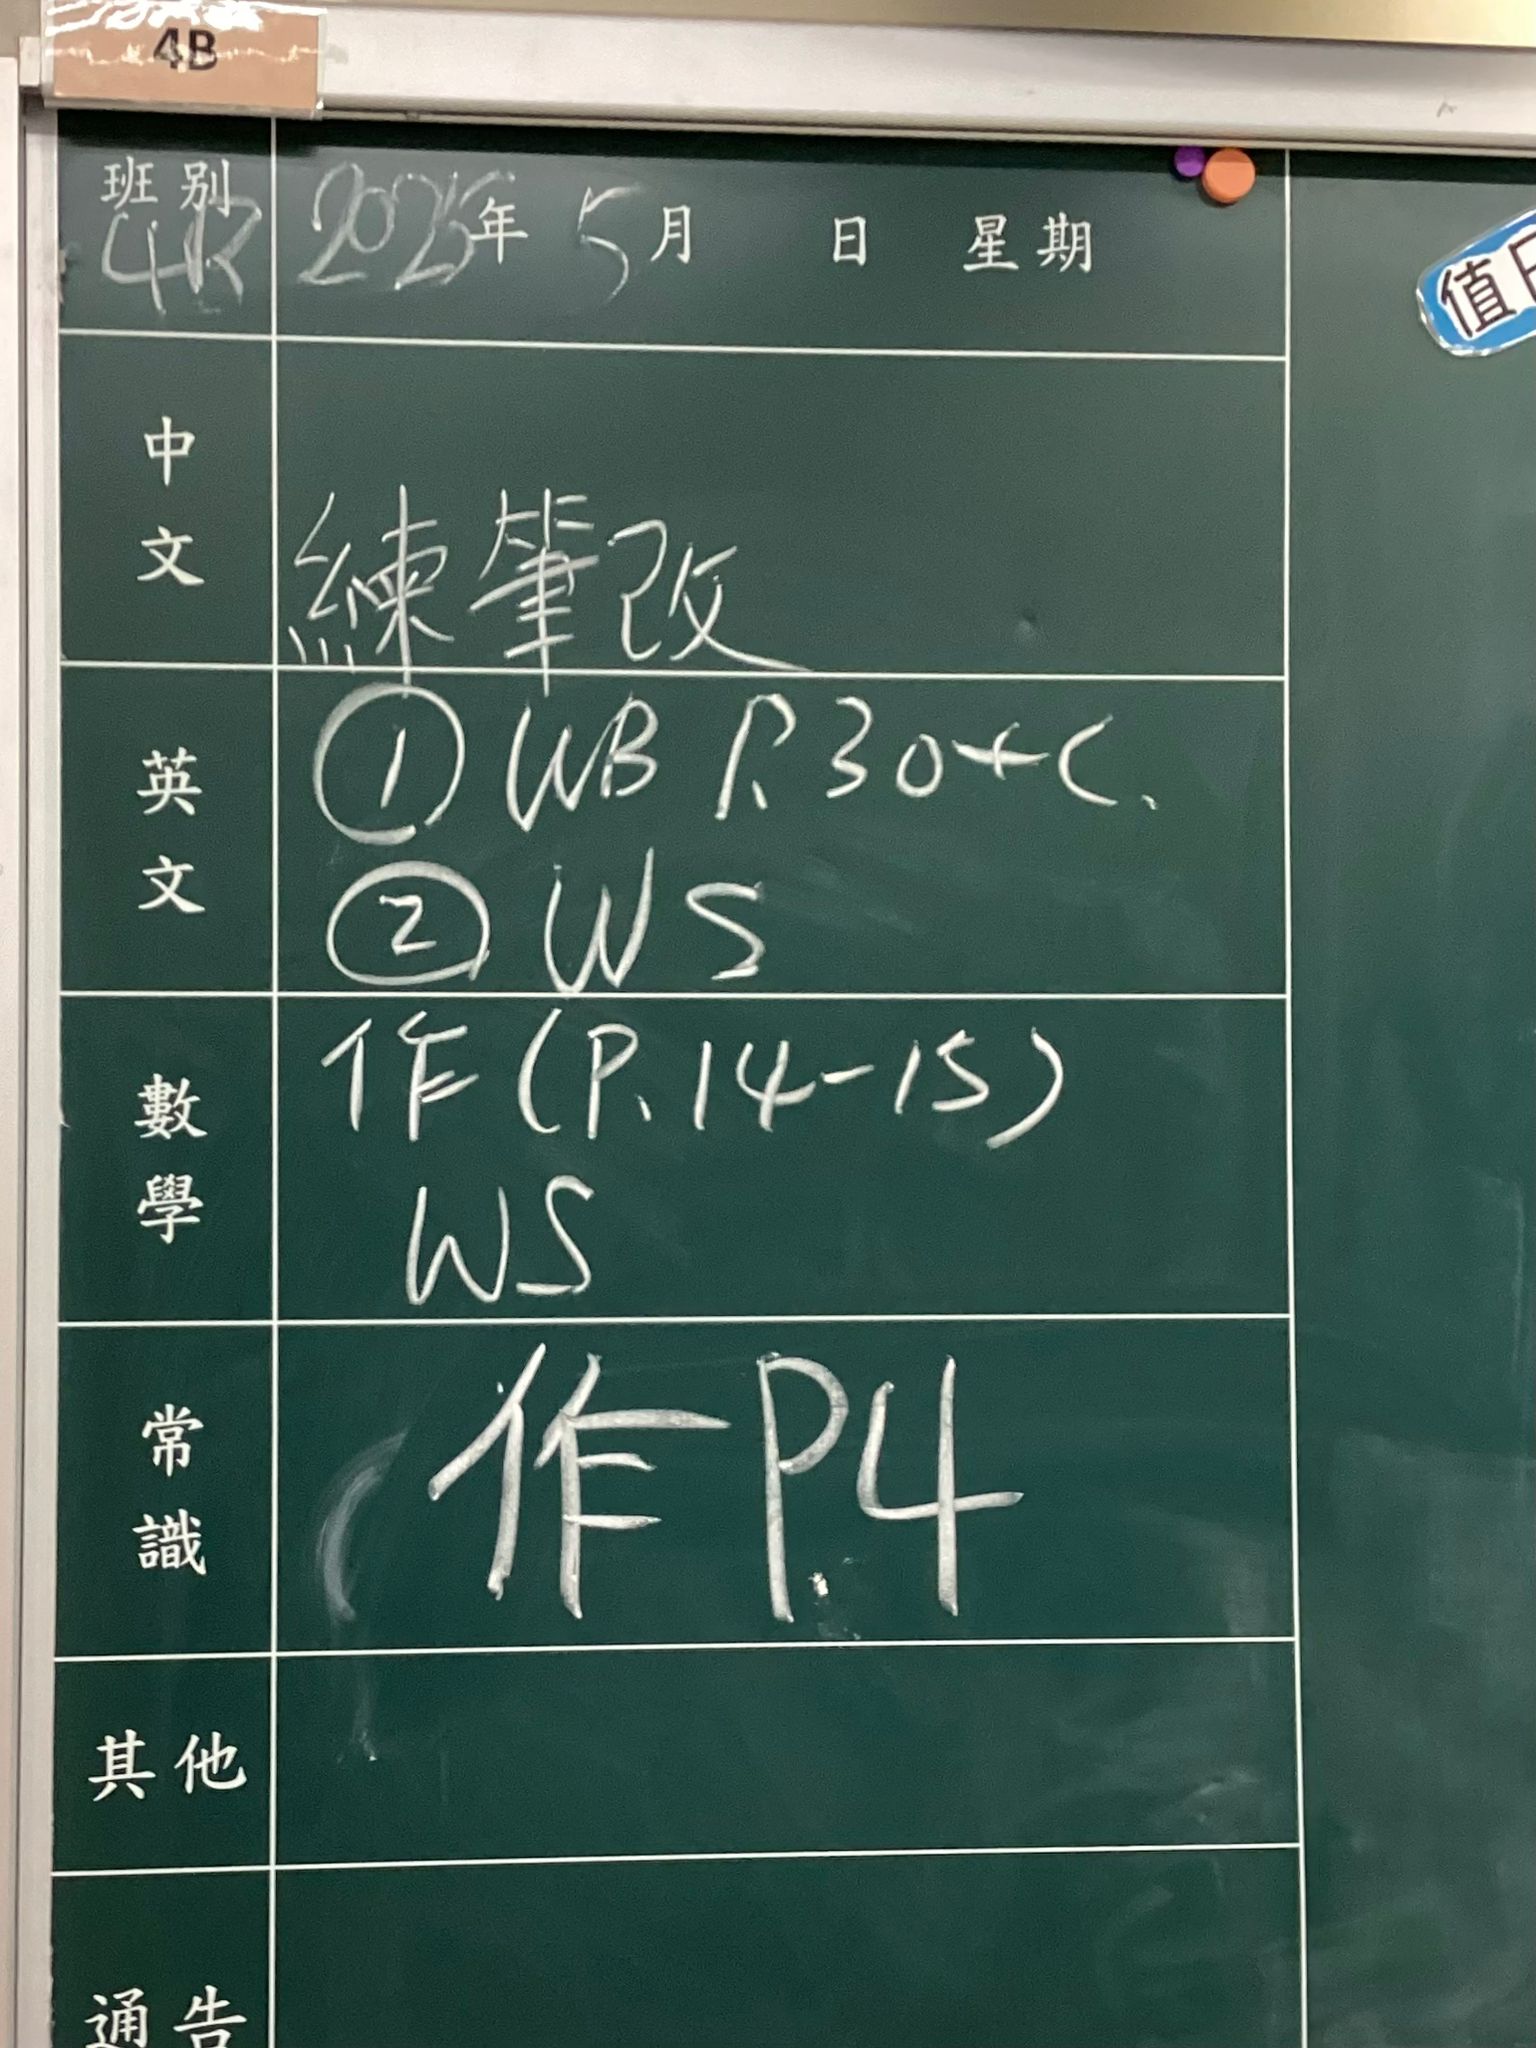 4B
班別 4B 2025年 5月 日 星期
值日
中文
練筆改
英文
① WB P.30+C.
② WS
數學
作(P.14-15)
WS
常識
作 P.4
其他
通告